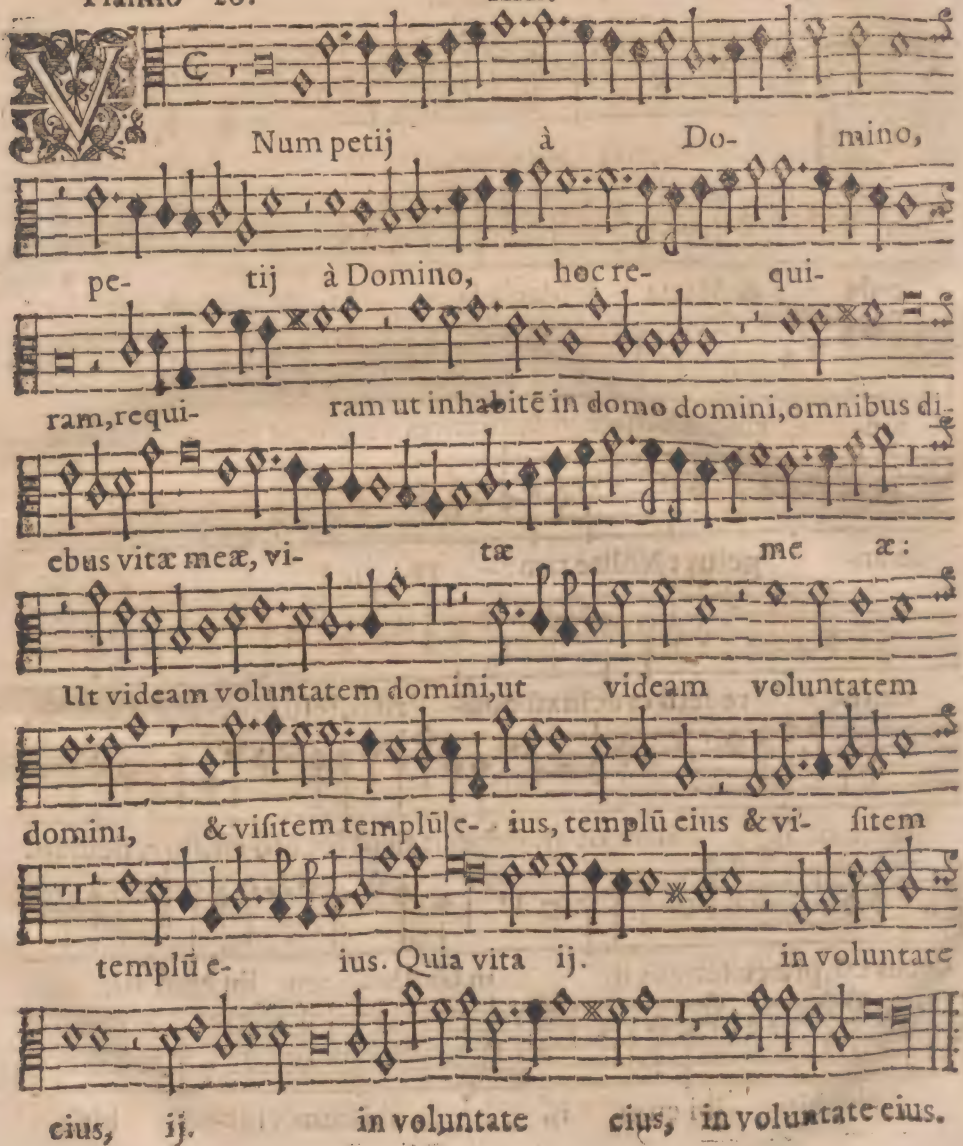 V
Num petij à Do- mino,
pe- tij à Domino, hoc re- qui-
ram, requi- ram ut inhabitē in domo domini, omnibus di-
ebus vitæ meæ, vi- tæ me æ:
Ut videam voluntatem domini, ut videam voluntatem
domini, & visitem templū e- ius, templū eius & vi- sitem
templū e- ius. Quia vita ij. in voluntate
eius, ij. in voluntate eius, in voluntate eius.